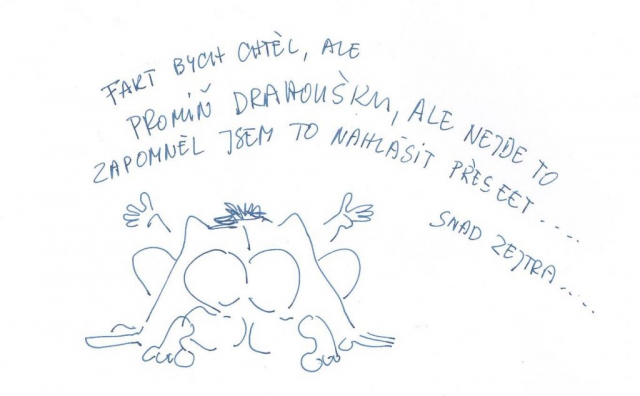 FAKT BYCH CHTĚL, ALE
PROMIŇ DRAHOUŠKU, ALE NEJDE TO
ZAPOMNĚL JSEM TO NAHLÁSIT PŘES EET....
SNAD ZEJTRA....